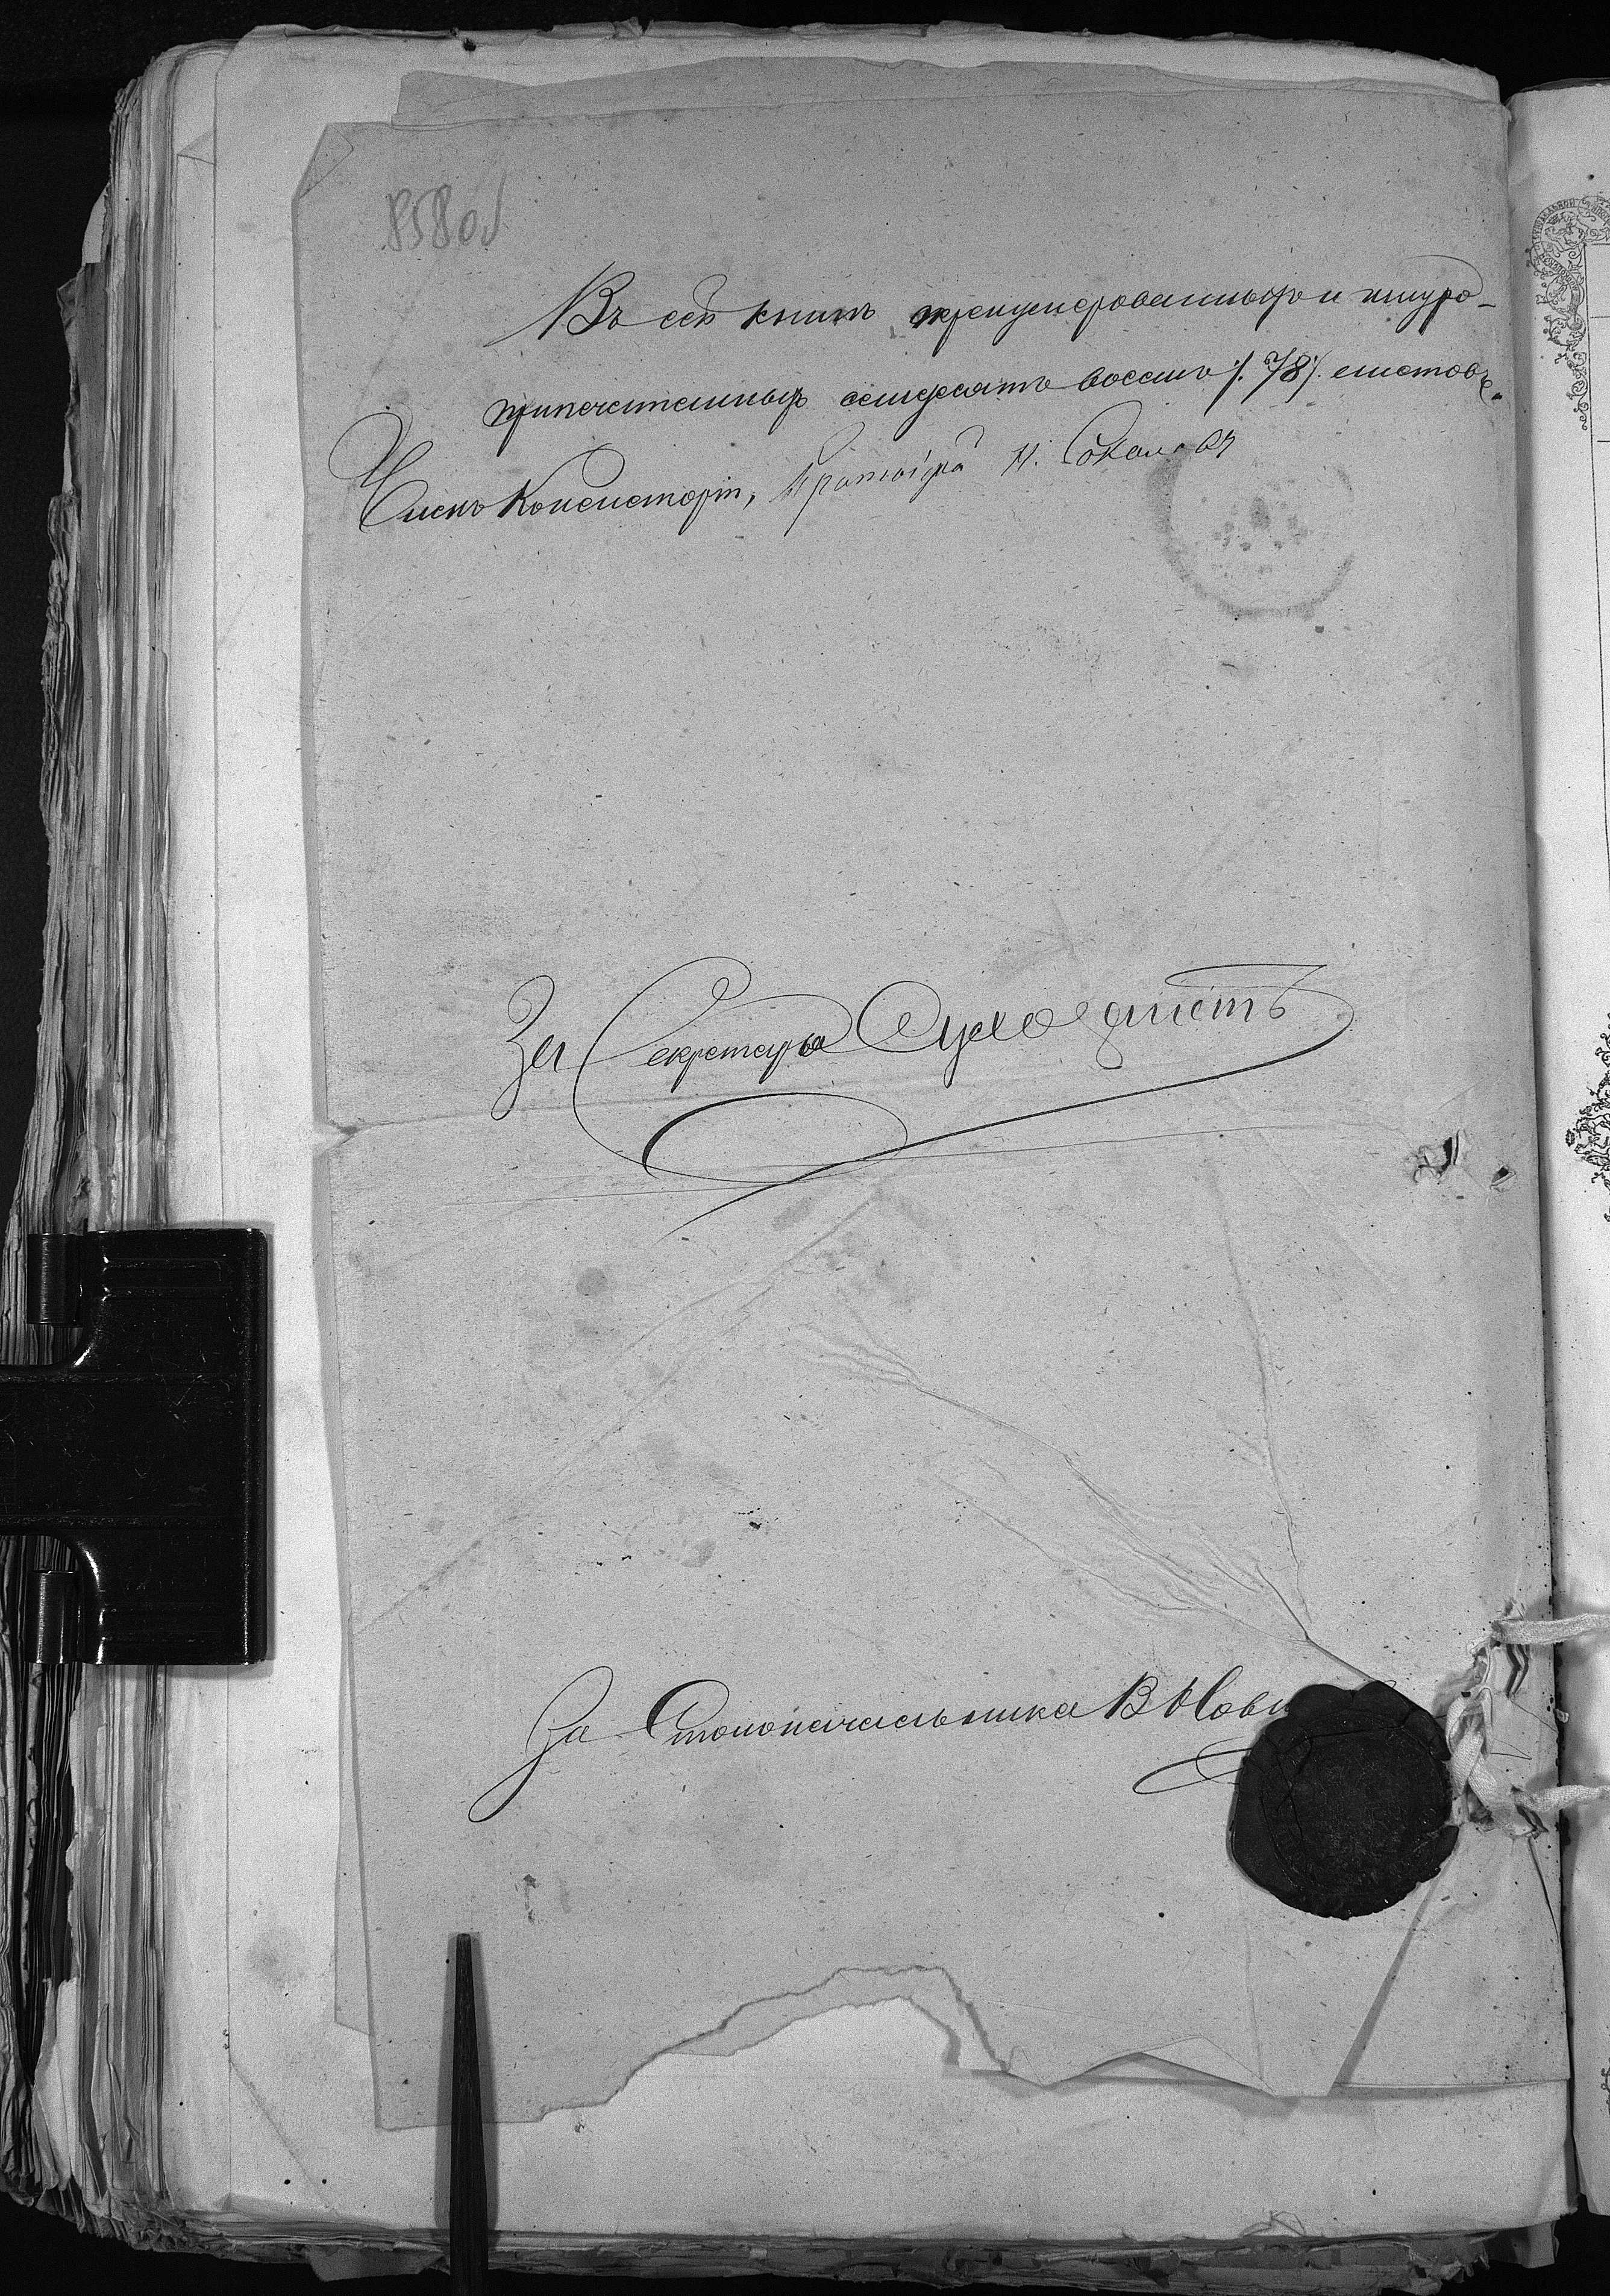 858 об
Въ сей книгѣ пренумерованныхъ и шнуро-
припечатанныхъ семдесятъ восемь /. 78 /. листовъ.
Членъ Консисторіи, Протоіерей Н. Соколовъ
За Секретаря
За Столоначальника В Нови